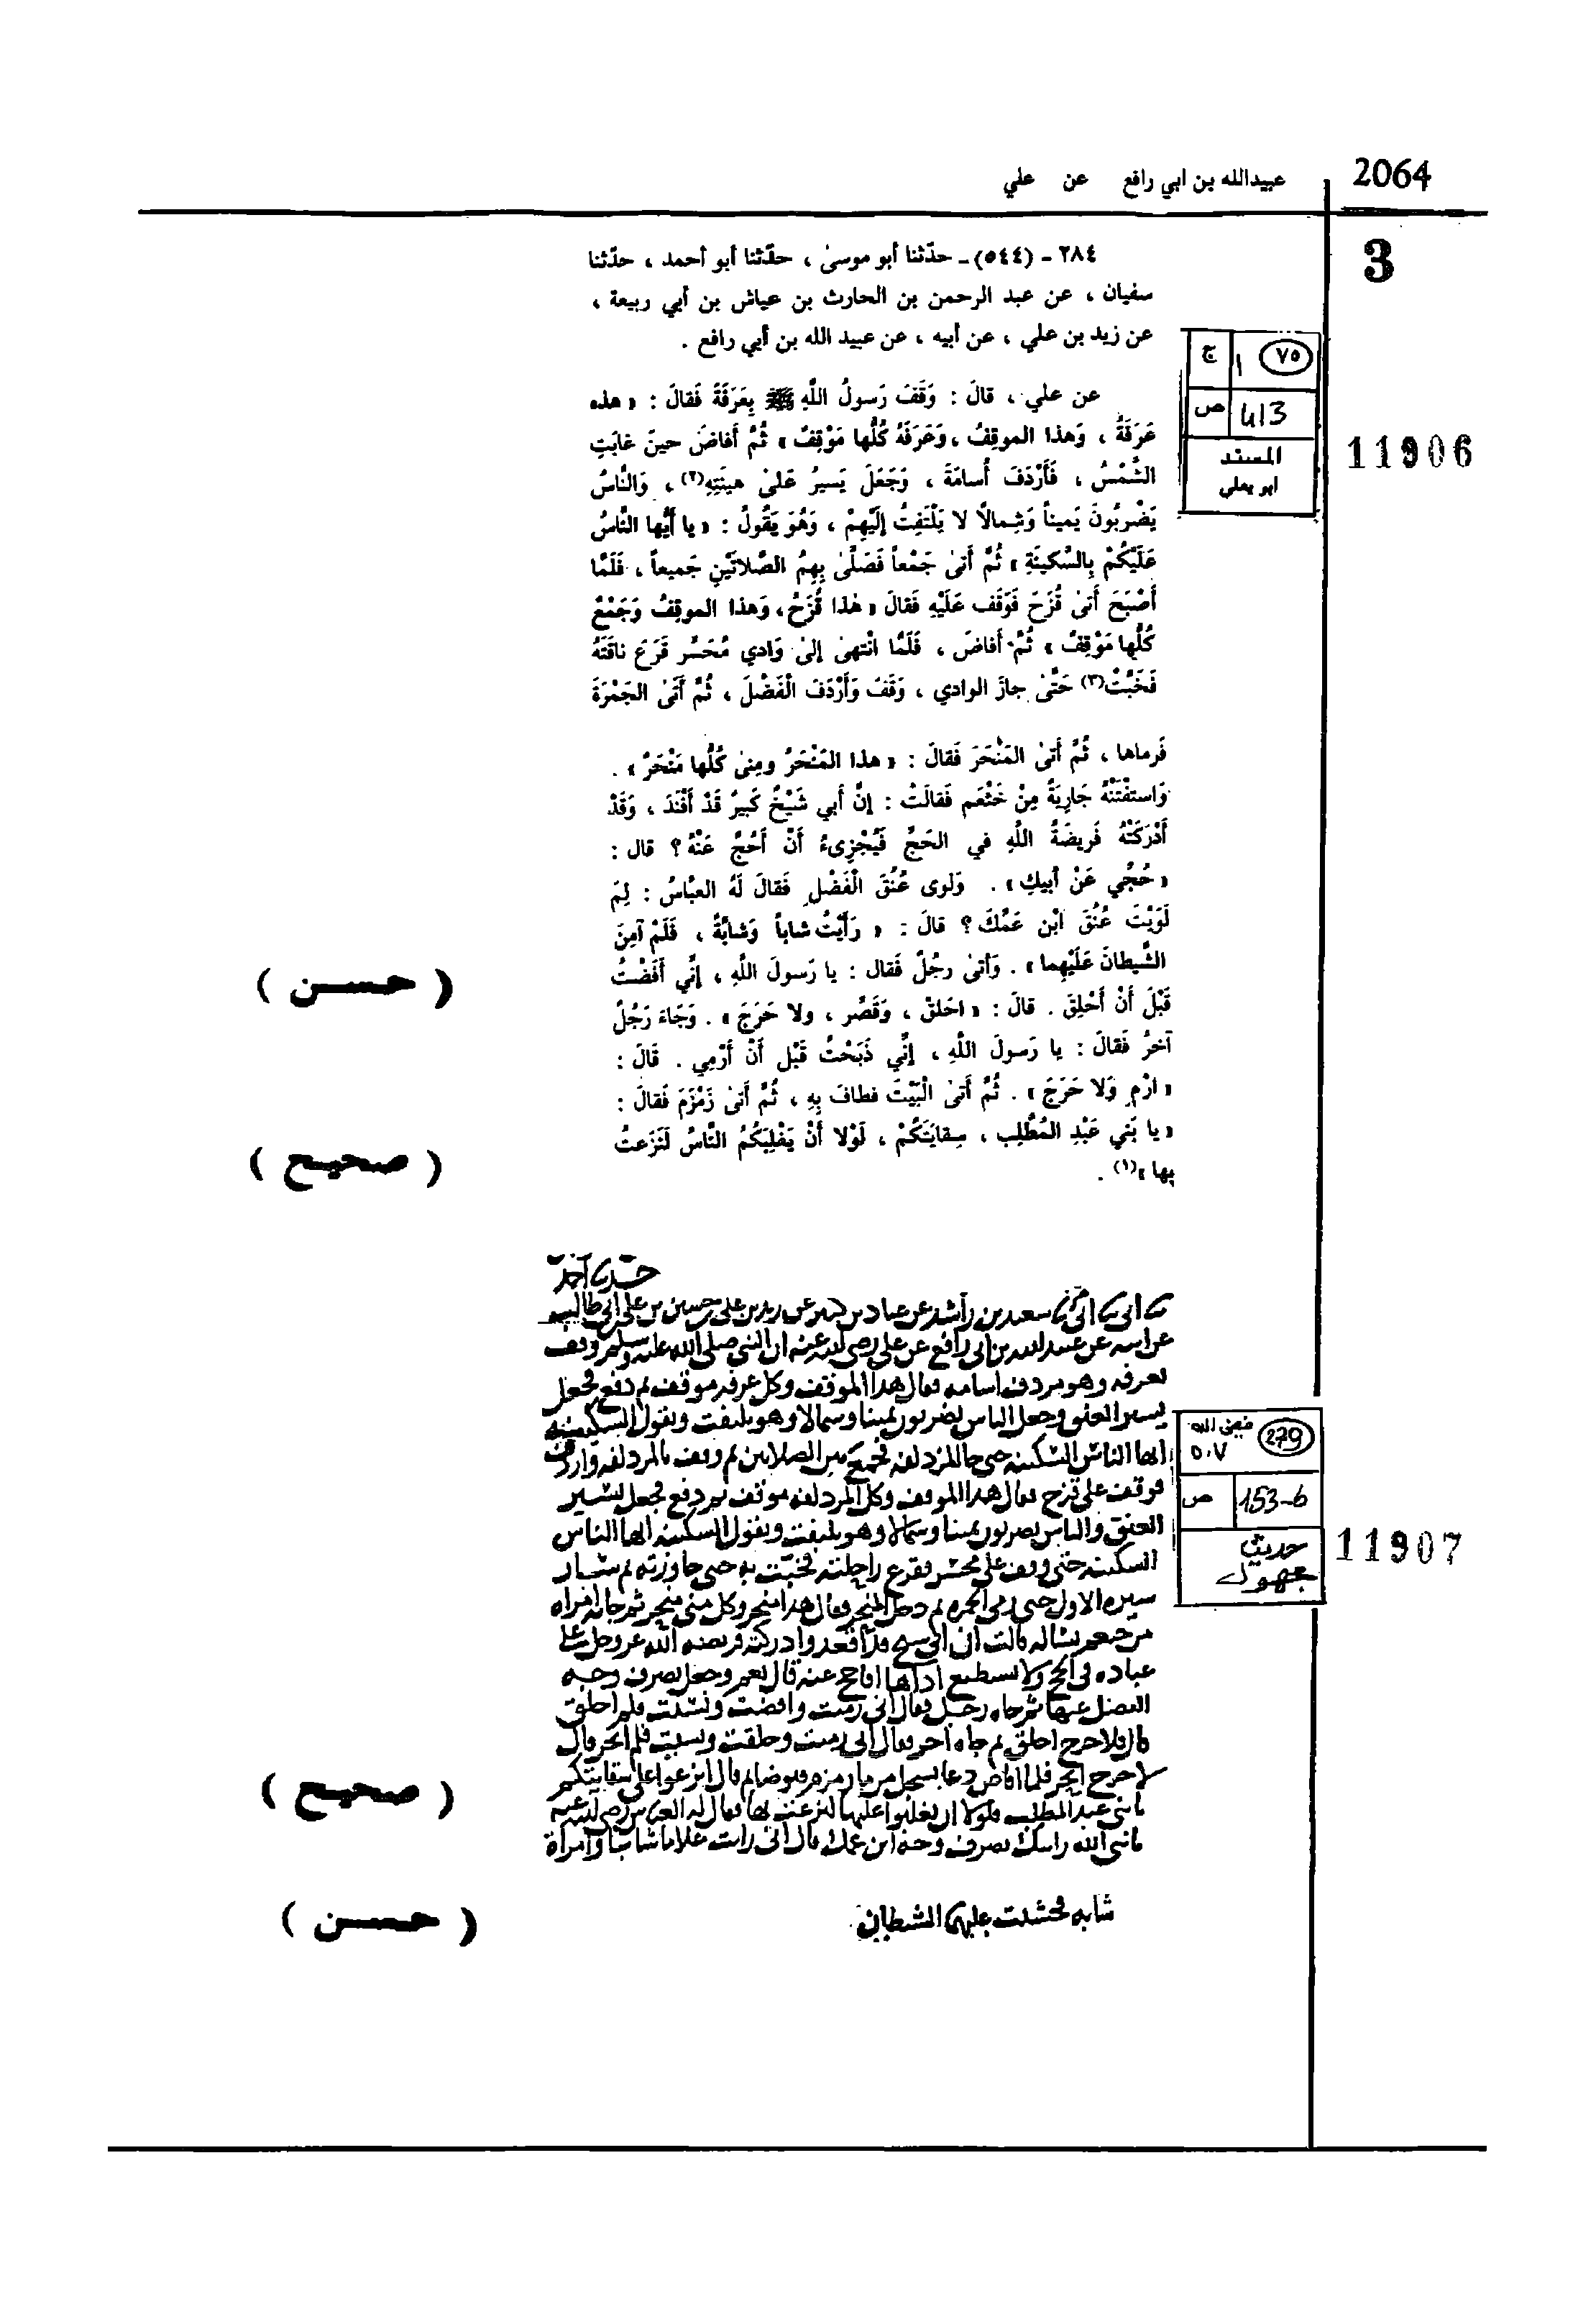 2064
عبيدالله بن ابي رافع عن علي
3
٢٨٤ - (٥٤٤) - حدّثنا أبو موسىٰ ، حدّثنا أبو أحمد ، حدّثنا
سفيان ، عن عبد الرحمن بن الحارث بن عياش بن أبي ربيعة ،
عن زيد بن علي ، عن أبيه ، عن عبيد الله بن أبي رافع .
٧٥ ١ ج
413 ص
المسند
ابو يعلي
11906
عن علي ، قالَ : وَقَفَ رَسولُ اللَّهِ ﷺ بِعَرَفَةَ فَقالَ : « هذه
عَرَفَةُ ، وَهذا الموقِفُ ، وَعَرَفَةُ كُلُّها مَوْقِفٌ » ثُمَّ أَفاضَ حينَ غابَتِ
الشَّمْسُ ، فَأَرْدَفَ أُسامَةَ ، وَجَعَلَ يَسيرُ عَلىٰ هينَتِهِ(٢) ، وَالنَّاسُ
يَضْرِبُونَ يَميناً وَشِمالًا لا يَلْتَفِتُ إلَيْهِمْ ، وَهُوَ يَقُولُ : « يا أَيُّها النَّاسُ
عَلَيْكُمْ بِالسَّكينَةِ » ثُمَّ أَتىٰ جَمْعاً فَصَلَّىٰ بِهِمُ الصَّلاتَيْنِ جَميعاً ، فَلَمَّا
أَصْبَحَ أَتىٰ قُزَحَ فَوَقَفَ عَلَيْهِ فَقالَ « هٰذا قُزَحُ ، وَهذا الموقِفُ وَجَمْعٌ
كُلُّها مَوْقِفٌ » ثُمَّ أَفاضَ ، فَلَمَّا انْتهىٰ إلىٰ وَادي مُحَسِّر قَرَعَ ناقَتَهُ
فَخَبَّتْ(٣) حَتَّىٰ جازَ الوادي ، وَقَفَ وَأَرْدَفَ الْفَضْلَ ، ثُمَّ أَتَىٰ الجَمْرَةَ
فَرماها ، ثُمَّ أَتىٰ المَنْحَرَ فَقالَ : « هذا المَنْحَرُ ومِنىٰ كُلُّها مَنْحَرٌ » .
وَاستفْتَتْهُ جَارِيَةٌ مِنْ خَثْعَم فَقالَتْ : إنَّ أَبي شَيْخٌ كَبيرٌ قَدْ أَفْنَدَ ، وَقَدْ
أَدْرَكَتْهُ فَريضَةُ اللَّهِ في الحَجِّ فَيُجْزِىءُ أَنْ أَحُجَّ عَنْهُ ؟ قال :
« حُجِّي عَنْ أَبيكِ » . وَلوى عُنُقَ الْفَضْلِ فَقالَ لَهُ العبَّاسُ : لِمَ
لَوَيْتَ عُنُقَ ابْن عَمِّكَ ؟ قالَ : « رَأَيْتُ شاباً وَشابَّةً ، فَلَمْ آمِنَ
الشَّيطانَ عَلَيْهِما » . وَأَتىٰ رجُلٌ فَقال : يا رَسولَ اللَّهِ ، إنِّي أَفَضْتُ
قَبْلَ أَنْ أَحْلِقَ . قالَ : « احَلقْ ، وَقَصِّر ، ولا حَرَجَ » . وَجَاءَ رَجُلٌ
آخرُ فَقالَ : يا رَسولَ اللَّهِ ، إنِّي ذَبَحْتُ قَبْل أَنْ أَرْمِي . قَالَ :
« ارْمِ وَلا حَرَجَ » . ثُمَّ أَتىٰ الْبَيْتَ فطافَ بِهِ ، ثُمَّ أَتىٰ زَمْزَمَ فَقالَ :
« يا بَني عَبْدِ المُطَّلِب ، سِقايَتَكُمْ ، لَوْلا أَنْ يَغْلِبَكُمُ النَّاسُ لَنَزَعتُ
بها »(١) .
( حسن )
( صحيح )
عن ابيه عن عبيد الله بن ابي رافع عن علي رضي الله عنه ان النبي صلى الله عليه وسلم وقف
بعرفه وهو مردف اسامه فقال هذا الموقف وكل عرفه موقف ثم دفع فجعل
يسير العنق وجعل الناس يضربون يمينا وشمالا وهو يلتفت ويقول السكينه
ايها الناس السكينه حتى جا المزدلفه فجمع بين الصلاتين ثم وقف بالمزدلفه واردف
فوقف على قزح فقال هذا الموقف وكل المزدلفه موقف ثم دفع فجعل يسير
العنق والناس يضربون يمينا وشمالا وهو يلتفت ويقول السكينه ايها الناس
السكينه حتى وقف على محسر فقرع راحلته فخبت به حتى جاوزته ثم سار
سيره الاول حتى رمى الجمره ثم دخل المنحر فقال هذا منحر وكل منى منحر ثم جاته امراه
عباده في الحج ولا يستطيع اداها افاحج عنه قال نعم وجعل يصرف وجه
الفضل عنها ثم جاه رجل فقال اني رميت وافضت ونسيت فلم احلق
قال فلا حرج احلق ثم جاه اخر فقال اني رميت وحلقت ونسيت فلم انحر قال
يا بني عبد المطلب فلولا ان تغلبوا عليها لنزعت
شابه فخشيت عليهما الشيطان
279
153-6 ص
حديث
مجهول
11907
( صحيح )
( حسن )